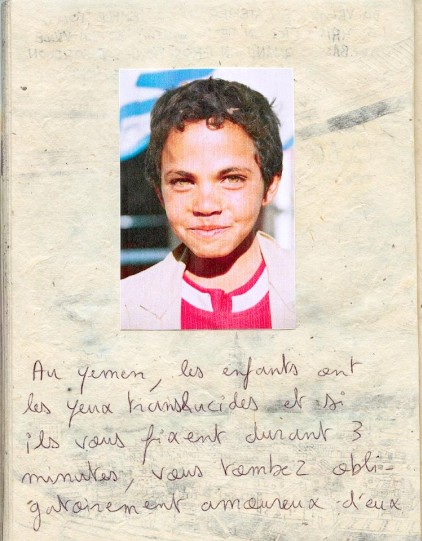 Au Yemen, les enfants ont
les yeux translucides et si
ils vous fixent durant 3
minutes, vous tombez obli-
gatoirement amoureux d'eux